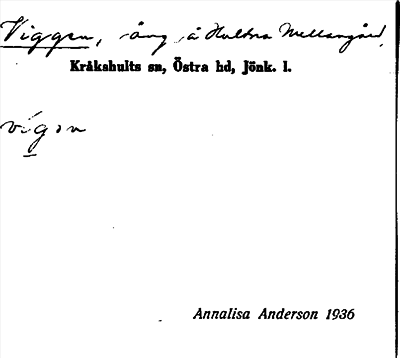 Viggen, äng å Hultna Mellangård,
Kråkshults sn, Östra hd, Jönk. l.
vígɔn
Annalisa Anderson 1936